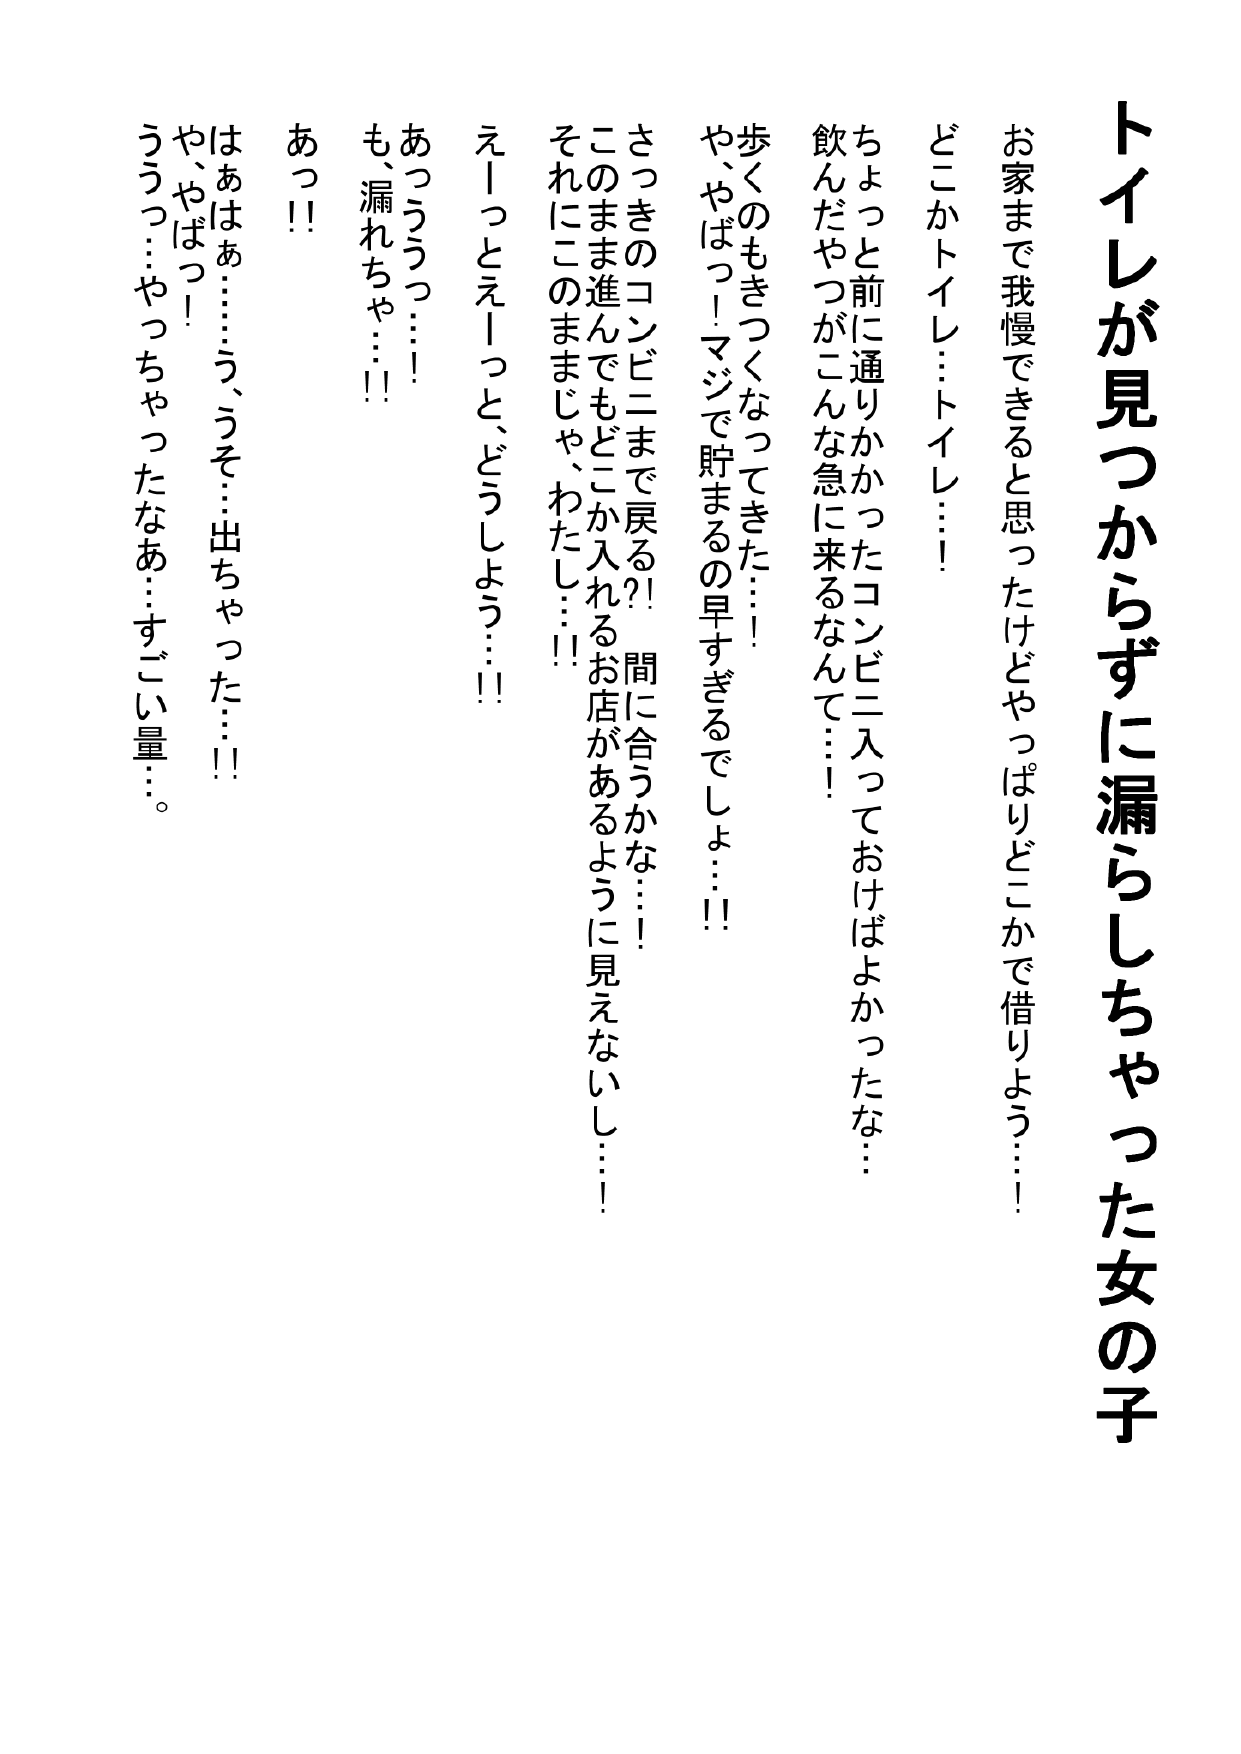 トイレが見つからずに漏らしちゃった女の子
お家まで我慢できると思ったけどやっぱりどこかで借りよう…！
どこかトイレ…トイレ…！
ちょっと前に通りかかったコンビニ入っておけばよかったな…
飲んだやつがこんな急に来るなんて…！
歩くのもきつくなってきた…！
や、やばっ！マジで貯まるの早すぎるでしょ…！！
さっきのコンビニまで戻る？！　間に合うかな…！
このまま進んでもどこか入れるお店があるように見えないし…！
それにこのままじゃ、わたし…！！
えーっとえーっと、どうしよう…！！
あっううっ…！
も、漏れちゃ…！！
あっ！！
はぁはぁ……う、うそ…出ちゃった…！！
や、やばっ！
ううっ…やっちゃったなあ…すごい量…。